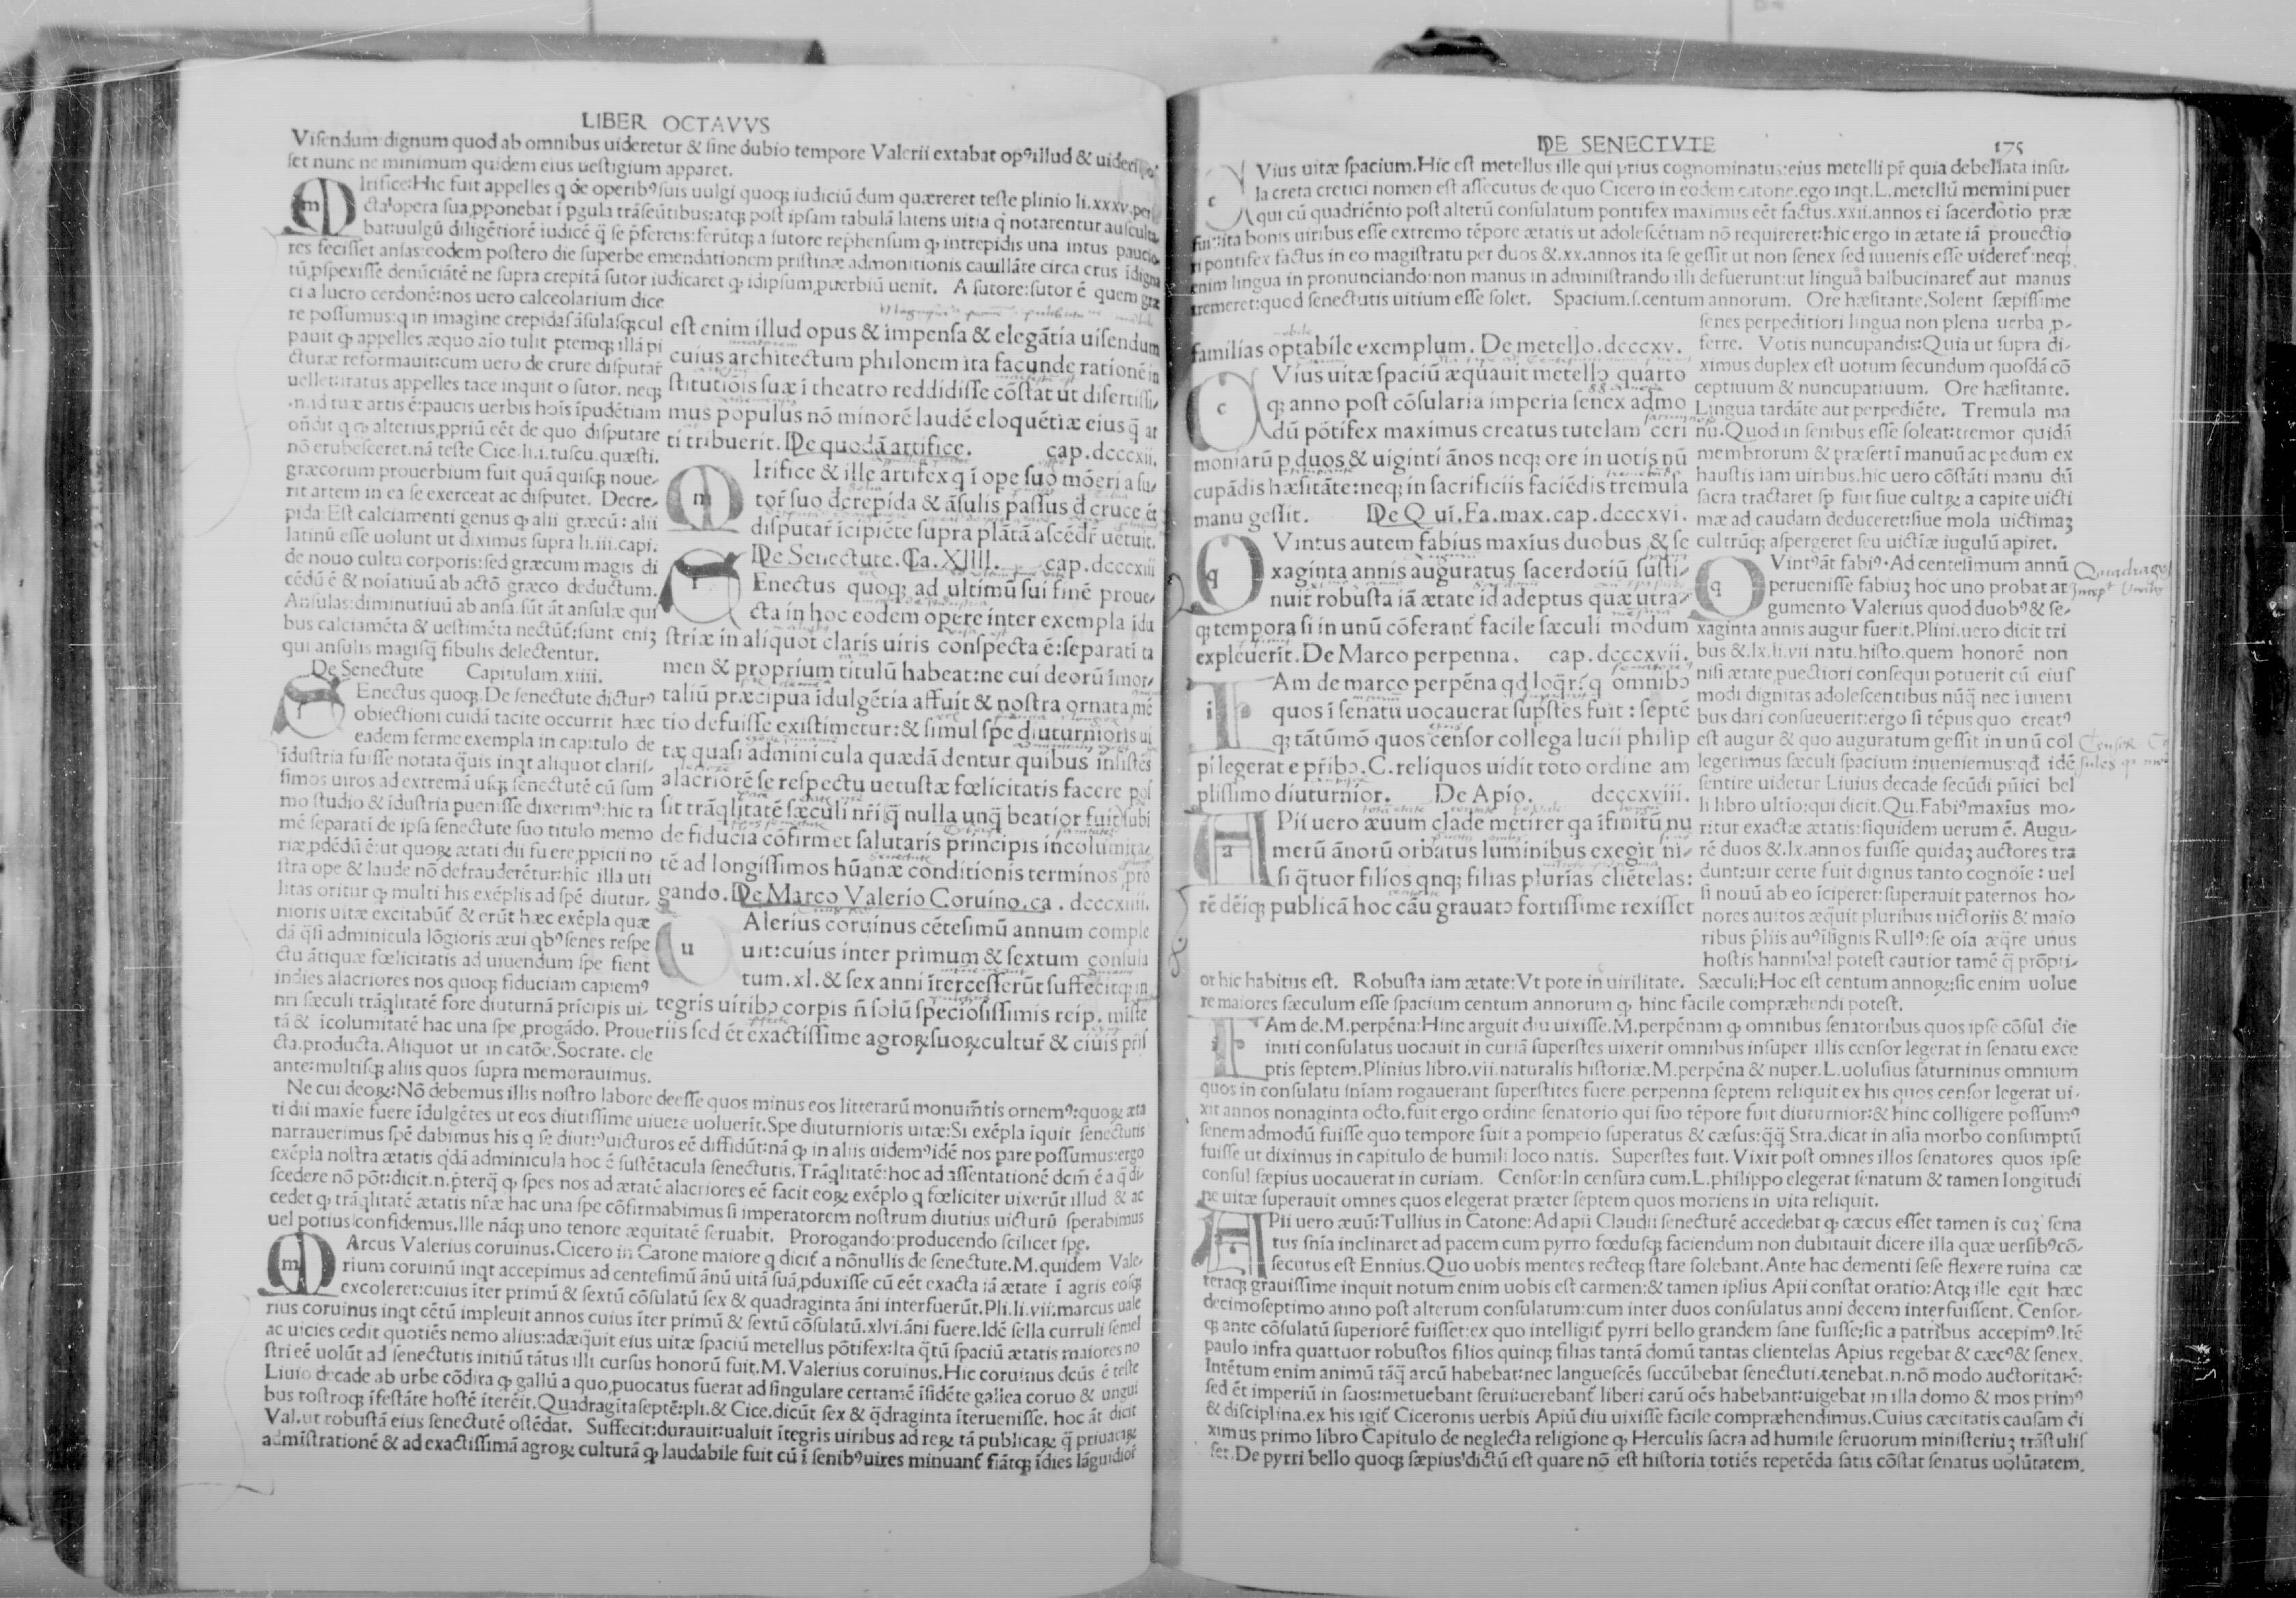 LIBER OCTAVVS
Visendum dignum quod ab omnibus uideretur & sine dubio tempore Valerii extabat opꝰ illud & uideri
set nunc ne minimum quidem eius uestigium apparet.
mIrifice: Hic fuit appelles q de operibꝰ suis uulgi quoqꝫ iudiciū dum quæreret teste plinio li.xxxv.per
cta opera sua pponebat ī pgula trāseūtibus: atqꝫ post ipsam tabulā latens uitia q̄ notarentur ausculta
bat: uulgū diligētiorē iudicē q̄ se p̄ferens: ferūtqꝫ a sutore rep̄hensum qꝫ intrepidis una intus paucio
res fecisset ansas: eodem postero die superbe emendationem pristinæ admonitionis cauillāte circa crus īdigna
tū pspexisse denūciātē ne supra crepitā sutor iudicaret qꝫ idipsum puerbiū uenit. A sutore: sutor ē quem græ
ci a lucro cerdonē: nos uero calceolarium dice
re possumus: q in imagine crepidas āsulasqꝫ cul
pauit qꝫ appelles æquo aīo tulit ptemqꝫ illā pi
cturæ reformauit: cum uero de crure disputar̄
uellet: iratus appelles tace inquit o sutor. neqꝫ
.n. id tuæ artis ē: paucis uerbis hoīs īpudētiam
ondit q qꝫ alterius ppriū eēt de quo disputare
nō erubesceret. nā teste Cice. li.i. tuscu. quæsti.
græcorum prouerbium fuit quā quisqꝫ noue-
rit artem in ea se exerceat ac disputet. Decre-
pida: Est calciamenti genus qꝫ alii græcū: alii
latinū esse uolunt ut diximus supra li.iii. capi.
de nouo cultu corporis: sed græcum magis di
cēdū ē & noīatiuū ab actō græco deductum.
Ansulas: diminutiuū ab ansa. sūt āt ansulæ qui
bus calciamēta & uestimēta nectūt̄: sunt eniꝫ
qui ansulis magisq̄ fibulis delectentur.
De Senectute Capitulum.xiiii.
sEnectus quoqꝫ. De senectute dicturꝰ
obiectioni cuidā tacite occurrit hæc
eadem ferme exempla in capitulo de
īdustria fuisse notata q̄uis inqt aliquot claris-
simos uiros ad extremā usqꝫ senectutē cū sum
mo studio & īdustria puenisse dixerimꝰ: hic ta
mē separati de ipsa senectute suo titulo memo
riæ pdēdū ē: ut quoꝝ ætati dii fuere ppicii no
stra ope & laude nō defrauderētur: hic illa uti
litas oritur qꝫ multi his exēplis ad spē diutur.
nioris uitæ excitabūt̄ & erūt hæc exēpla quæ
dā q̄si adminicula lōgioris æui qbꝰ senes respe
ctu ātiquæ fœlicitatis ad uiuendum spe fient
indies alacriores nos quoqꝫ fiduciam capiemꝰ
nri sæculi trāqlitatē fore diuturnā prīcipis ui-
tā & īcolumitatē hac una spe progādo. Proue
cta. producta. Aliquot ut in catōe. Socrate. cle
ante: multisqꝫ aliis quos supra memorauimus.
est enim illud opus & impensa & elegātia uisendum
cuius architectum philonem ita facunde rationē in
stitutiōis suæ ī theatro reddidisse cōstat ut disertissi-
mus populus nō minorē laudē eloquētiæ eius q̄ ar
ti tribuerit. De quodā artifice. cap.dcccxii.
mIrifice & ille artifex q ī ope suo mōeri a su-
tor̄ suo d̄ crepida & āsulis passus d̄ cruce ēt
disputar̄ īcipiēte supra plātā ascēdr̄ uetuit.
De Senectute. Ca. XIIII. cap.dcccxiii
sEnectus quoqꝫ ad ultimū sui finē proue-
cta in hoc eodem opere inter exempla īdu
striæ in aliquot claris uiris conspecta ē: separati ta
men & proprium titulū habeat: ne cui deorū īmor-
taliū præcipua īdulgētia affuit & nostra ornata mē
tio defuisse existimetur: & simul spe diuturnioris ui
tæ quasi adminicula quædā dentur quibus insistēs
alacriorē se respectu uetustæ fœlicitatis facere pos
sit trāqlitatē sæculi nr̄i q̄ nulla unq̄ beatior fuit subi
de fiducia cōfirmet salutaris principis incolumita
tē ad longissimos hūanæ conditionis terminos pro
gando. De Marco Valerio Coruino. ca. dcccxiiii.
uAlerius coruinus cētesimū annum comple
uit: cuius inter primum & sextum consula
tum.xl.& sex anni īntercesserūt suffecitqꝫ in
tegris uiribꝰ corpis n̄ solū speciosissimis reip. miste
riis sed ēt exactissime agroꝝ suoꝝ cultur̄ & ciuis pr̄is
Ne cui deoꝝ: Nō debemus illis nostro labore deesse quos minus eos litterarū monum̄tis ornemꝰ: quoꝝ æta
ti dii maxīe fuere īdulgētes ut eos diutissime uiuere uoluerit. Spe diuturnioris uitæ: Si exēpla īquit senectutis
narrauerimus spē dabimus his q se diutiꝰ uicturos eē diffidūt: nā qꝫ in aliis uidemꝰ idē nos pare possumus: ergo
exēpla nostra ætatis q̄dā adminicula hoc ē sustētacula senectutis. Trāqlitatē: hoc ad assentationē dcm̄ ē a q̄ di
scedere nō pōt: dicit.n. p̄terq̄ qꝫ spes nos ad ætatē alacriores eē facit eoꝝ exēplo q fœliciter uixerūt illud & ac
cedet qꝫ trāqlitatē ætatis nr̄æ hac una spe cōfirmabimus si imperatorem nostrum diutius uicturū sperabimus
uel potius confidemus. Ille nāqꝫ uno tenore æquitatē seruabit. Prorogando: producendo scilicet spe.
mArcus Valerius coruinus. Cicero in Catone maiore q dicit̄ a nōnullis de senectute. M. quidem Vale-
rium coruinū inqt accepimus ad centesimū ānū uitā suā pduxisse cū eēt exacta iā ætate ī agris eosqꝫ
excoleret: cuius īter primū & sextū cōsulatū sex & quadraginta āni interfuerūt. Pli. li. vii. marcus uale
rius coruinus inqt cētū impleuit annos cuius īter primū & sextū cōsulatū.xlvi. āni fuere. Idē sella curruli semel
ac uicies cedit quotiēs nemo alius: adæq̄uit eius uitæ spaciū metellus pōtifex: Ita q̄tū spaciū ætatis maiores no
stri eē uolūt ad senectutis initiū tātus illi cursus honorū fuit. M. Valerius coruinus. Hic coruinus dcūs ē teste
Liuio decade ab urbe cōdita qꝫ gallū a quo puocatus fuerat ad singulare certamē īsidēte galica coruo & ungui
bus rostroqꝫ īfestāte hostē īterēit. Quadragītaseptē: pli. & Cice. dicūt sex & q̄draginta īteruenisse. hoc āt dicit
Val. ut robustā eius senectutē ostēdat. Suffecit: durauit: ualuit ītegris uiribus ad reꝝ tā publicaꝝ q̄ priuataꝝ
admīstrationē & ad exactissimā agroꝝ culturā qꝫ laudabile fuit cū ī senibꝰ uires minuant̄ fiātqꝫ īdies lāguidior̄
DE SENECTVTE 175
cVius uitæ spacium. Hic est metellus ille qui prius cognominatus: eius metelli pr̄ quia debellata insu-
la creta cretici nomen est assecutus de quo Cicero in eodem catone. ego inqt. L. metellū memini puer
qui cū quadriēnio post alterū consulatum pontifex maximus eēt factus.xxii. annos ei sacerdotio præ
fuit: ita bonis uiribus esse extremo tēpore ætatis ut adolescētiam nō requireret: hic ergo in ætate iā prouectio
ri pontifex factus in eo magistratu per duos &.xx. annos ita se gessit ut non senex sed iuuenis esse uideret̄: neqꝫ
enim lingua in pronunciando: non manus in administrando illi defuerunt: ut linguā balbucinaret̄ aut manus
tremeret: quod senectutis uitium esse solet. Spacium.s. centum annorum. Ore hæsitante. Solent sæpissime
senes perpeditiori lingua non plena uerba p-
ferre. Votis nuncupandis: Quia ut supra di-
ximus duplex est uotum secundum quosdā cō
ceptiuum & nuncupatiuum. Ore hæsitante.
Lingua tardāte aut perpediēte. Tremula ma
nū. Quod in senibus esse soleat: tremor quidā
membrorum & præsertī manuū ac pedum ex
haustis iam uiribus. hic uero cōstāti manu dū
sacra tractaret sp̄ fuit siue cultꝝ a capite uicti
mæ ad caudam deduceret: siue mola uictimaꝫ
cultrūqꝫ aspergeret seu uictīæ iugulū apiret.
familias optabile exemplum. De metello. dcccxv.
cVius uitæ spaciū æquauit metello quarto
qꝫ anno post cōsularia imperia senex admo
dū pōtifex maximus creatus tutelam ceri
moniarū p duos & uiginti ānos neqꝫ ore in uotis nū
cupādis hæsitāte: neqꝫ in sacrificiis faciēdis tremula
manu gessit. De Q uī. Fa. max. cap. dcccxvi.
qVintus autem fabius maxīus duobus & se
xaginta annis auguratus sacerdotiū susti-
nuit robusta iā ætate id adeptus quæ utra-
qꝫ tempora si in unū cōferant̄ facile sæculi modum
expleuerit. De Marco perpenna. cap. dcccxvii.
iAm de marco perpēna qd loqr̄: q omnibꝰ
quos ī senatu uocauerat supstes fuit: septē
qꝫ tātūmō quos censor collega lucii philip
pi legerat e pr̄ibꝰ. C. reliquos uidit toto ordine am
plissimo diuturnior. De Apio. dcccxviii.
aPii uero æuum clade metirer qa īfinitū nu
merū ānorū orbatus luminibus exegit ni-
si q̄tuor filios qnqꝫ filias plurīas cliētelas:
rē dēiqꝫ publicā hoc cāu grauatꝰ fortissime rexisset
qVintꝰ āt fabiꝰ. Ad centesimum annū
peruenisse fabiuꝫ hoc uno probat ar
gumento Valerius quod duobꝰ & se-
xaginta annis augur fuerit. Plini. uero dicit tri
bus &.lx. li. vii natu. histo. quem honorē non
nisi ætate puectiori consequi potuerit cū eius
modi dignitas adolescentibus nūq̄ nec iuueni
bus dari consueuerit: ergo si tēpus quo creatꝰ
est augur & quo auguratum gessit in unū col
legerimus sæculi spacium inueniemus: qd̄ idē
sentire uidetur Liuius decade secūdi pūici bel
li libro ultīo: qui dicit. Qu. Fabiꝰ maxīus mo-
ritur exactæ ætatis: siquidem uerum ē. Augu-
rē duos &.lx. annos fuisse quidaꝫ auctores tra
dunt: uir certe fuit dignus tanto cognoīe: uel
si nouū ab eo īciperet: superauit paternos ho-
nores auitos æq̄uit pluribus uictoriis & maio
ribus p̄liis auꝰ īsignis Rullꝰ: se oīa æq̄re unus
hostis hannibal potest cautior tamē q̄ prōpti-
or hic habitus est. Robusta iam ætate: Vt pote in uirilitate. Sæculi: Hoc est centum annoꝝ: sic enim uolue
re maiores sæculum esse spacium centum annorum qꝫ hinc facile compræhendi potest.
iAm de. M. perpēna: Hinc arguit diu uixisse. M. perpēnam qꝫ omnibus senatoribus quos ipse cōsul die
initi consulatus uocauit in curiā superstes uixerit omnibus insuper illis censor legerat in senatu exce
ptis septem. Plinius libro. vii. naturalis historiæ. M. perpēna & nuper. L. uolusius saturninus omnium
quos in consulatu sn̄iam rogauerant superstites fuere. perpenna septem reliquit ex his quos censor legerat ui-
xit annos nonaginta octo. fuit ergo ordine senatorio qui suo tēpore fuit diuturnior: & hinc colligere possumꝰ
senem admodū fuisse quo tempore fuit a pompeio superatus & cæsus: q̄q̄ Stra. dicat in asia morbo consumptū
fuisse ut diximus in capitulo de humili loco natis. Superstes fuit. Vixit post omnes illos senatores quos ipse
consul sæpius uocauerat in curiam. Censor: In censura cum. L. philippo elegerat senatum & tamen longitudi
ne uitæ superauit omnes quos elegerat præter septem quos moriens in uita reliquit.
aPii uero æuū: Tullius in Catone: Ad apii Claudii senectutē accedebat qꝫ cæcus esset tamen is cuꝫ sena
tus sn̄ia inclinaret ad pacem cum pyrro fœdusqꝫ faciendum non dubitauit dicere illa quæ uersibꝰ cō-
secutus est Ennius. Quo uobis mentes recteqꝫ stare solebant. Ante hac dementi sese flexere ruina cæ
teraqꝫ grauissime inquit notum enim uobis est carmen: & tamen ipsius Apii constat oratio: Atqꝫ ille egit hæc
decimoseptimo anno post alterum consulatum: cum inter duos consulatus anni decem interfuissent. Censor-
qꝫ ante cōsulatū superiorē fuisset: ex quo intelligit̄ pyrri bello grandem sane fuisse: sic a patribus accepimꝰ. Itē
paulo infra quattuor robustos filios quinqꝫ filias tantā domū tantas clientelas Apius regebat & cæcꝰ & senex.
Intētum enim animū tāq̄ arcū habebat: nec languescēs succūbebat senectuti. tenebat.n. nō modo auctoritatē:
sed ēt imperiū in suos: metuebant serui: uerebant̄ liberi carū oēs habebant: uigebat in illa domo & mos primꝰ
& disciplina. ex his igit̄ Ciceronis uerbis Apiū diu uixisse facile compræhendimus. Cuius cæcitatis causam di
ximus primo libro Capitulo de neglecta religione qꝫ Herculis sacra ad humile seruorum ministeriuꝫ trāstulis
set. De pyrri bello quoqꝫ sæpius dictū est quare nō est historia totiēs repetēda satis cōstat senatus uolūtatem.